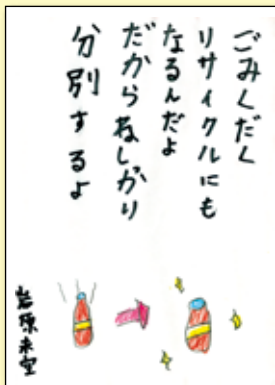 ごみくだく
リサイクルにも
なるんだよ
だからねしかり
分別するよ
岩原未空